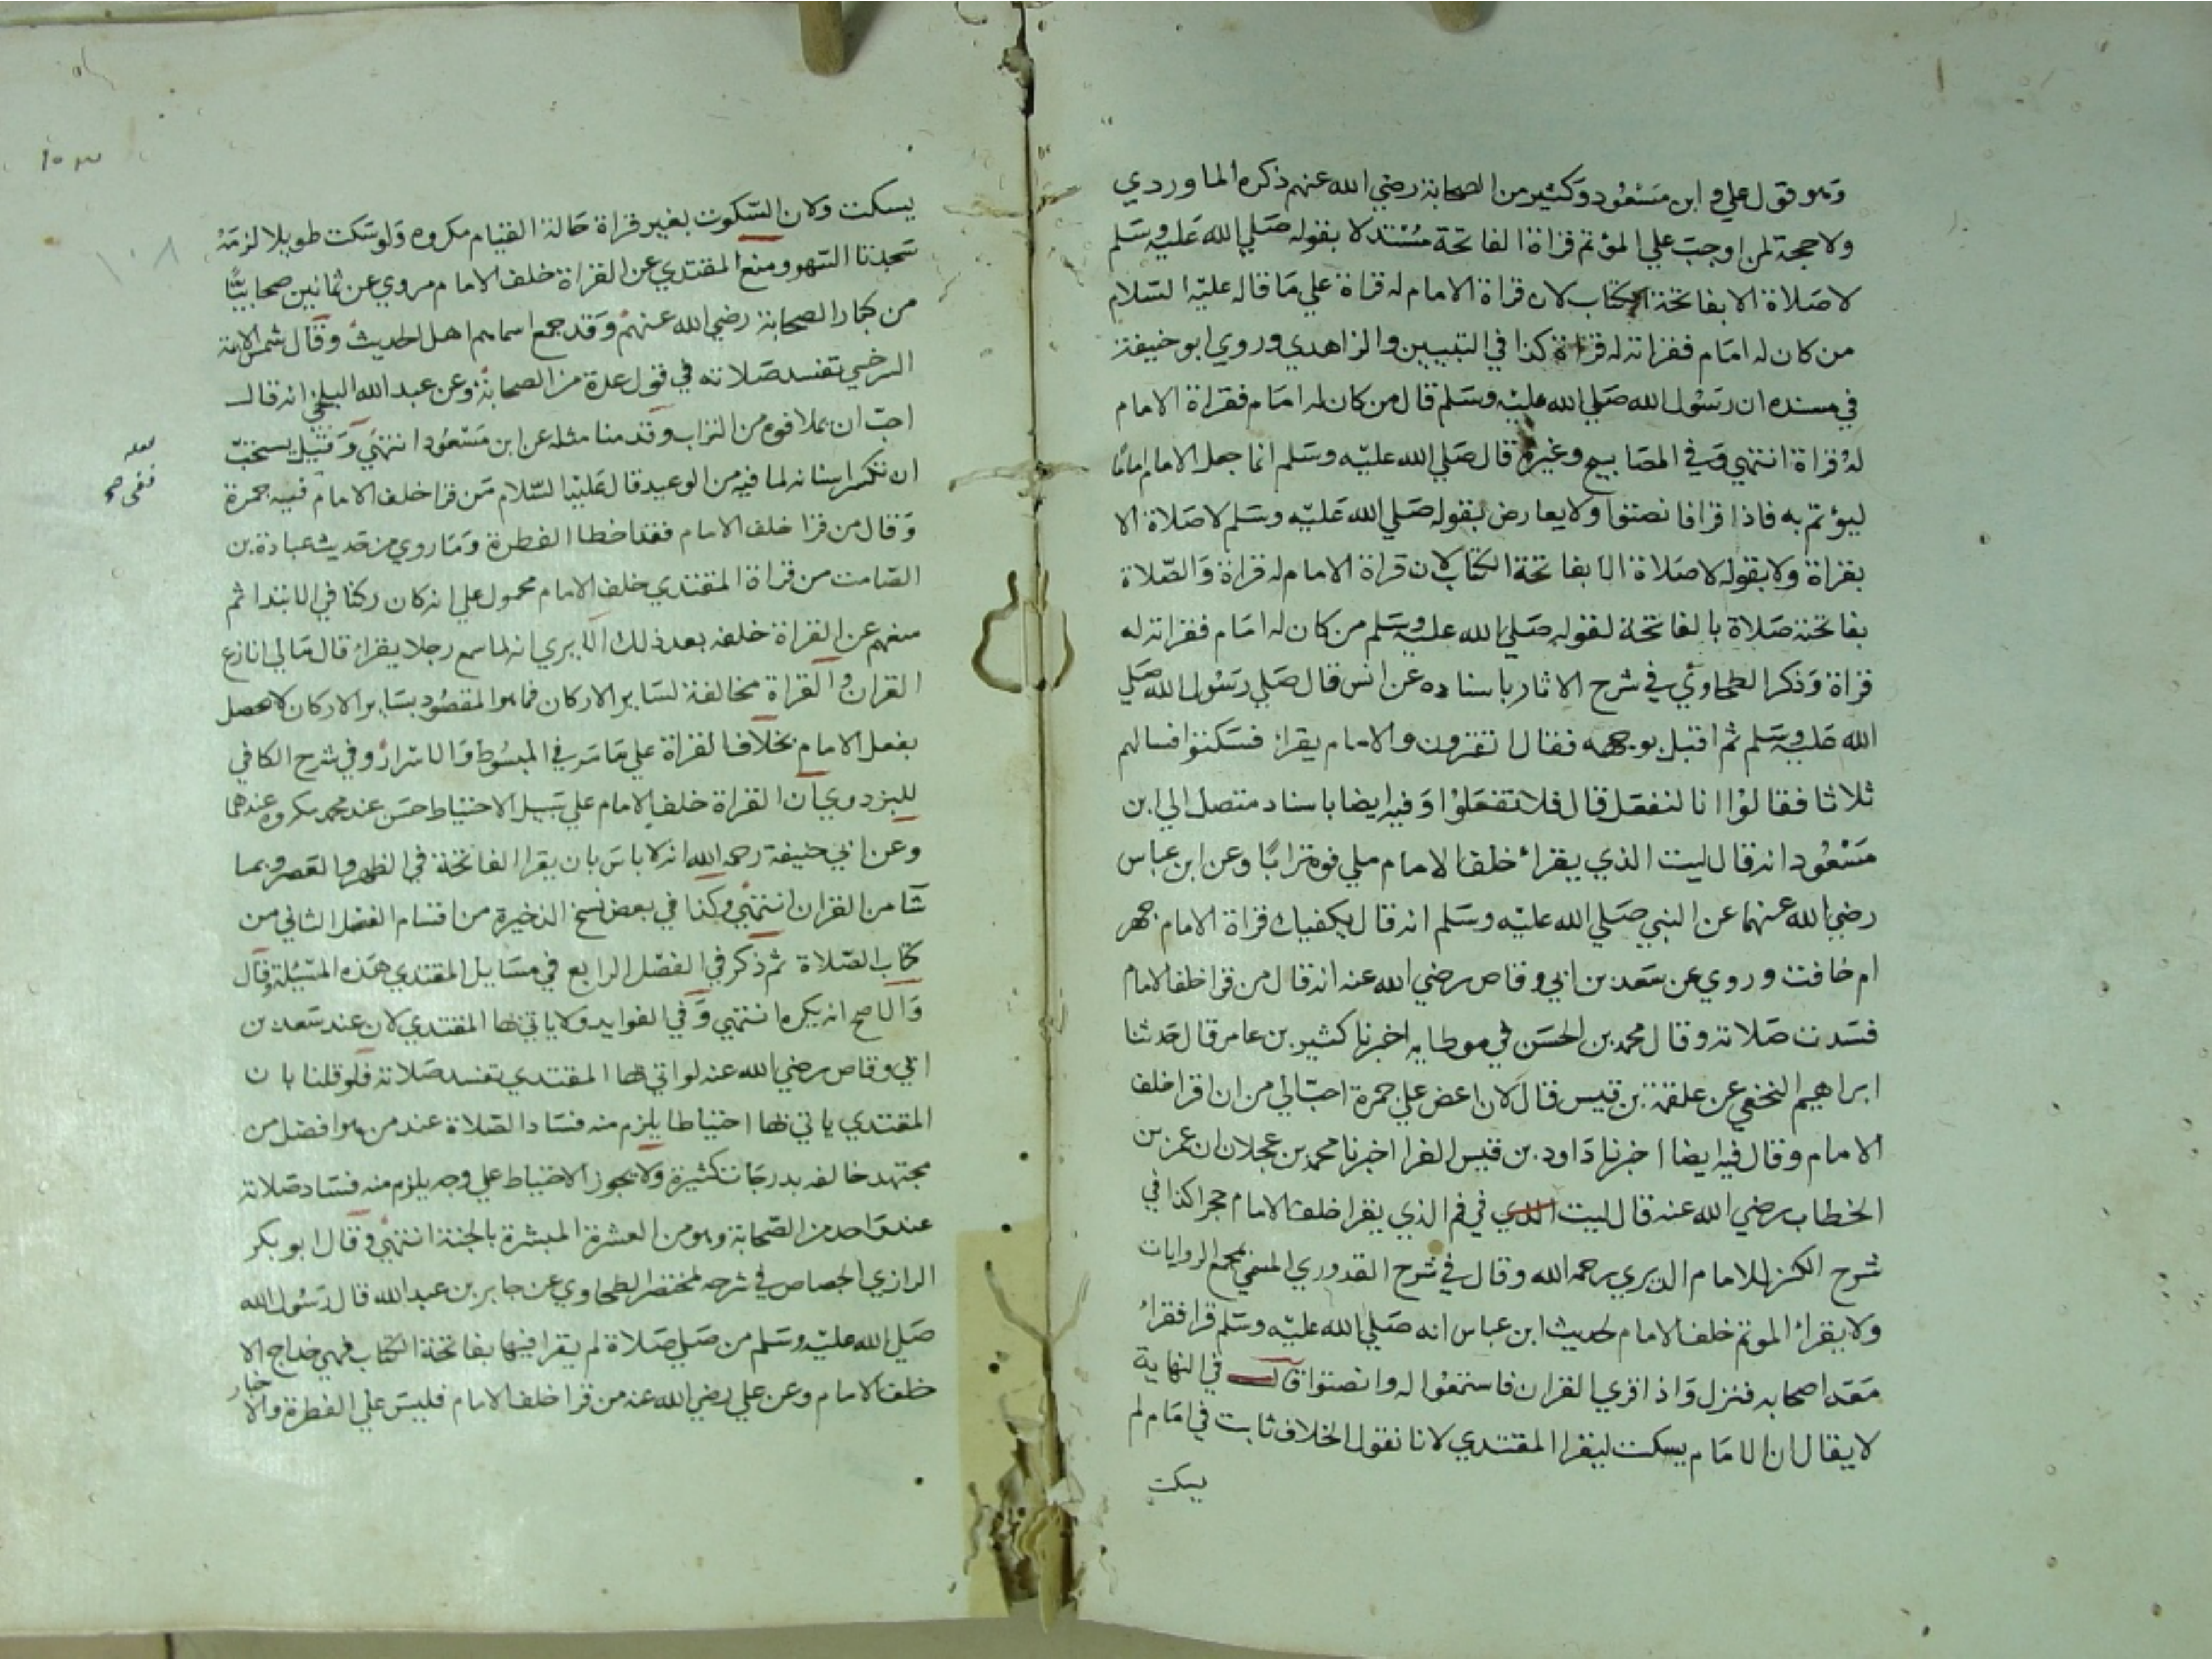 وهو قول علي و ابن مسعود وكثير من الصحابة رضي الله عنهم ذكره الماوردي
ولا حجة لمن اوجب علي المؤتم قراة الفاتحة مستدلا بقوله صلي الله عليه وسلم
لا صلاة الا بفاتحة الكتاب لان قراة الامام له قراة علي ما قاله عليه السلام
من كان له امام فقراته له قراة كذا في التبيين والزاهدي وروي ابو حنيفة
في مسنده ان رسول الله صلي الله عليه وسلم قال من كان له امام فقراة الامام
له قراة انتهي وفي المصابيح وغيره قال صلي الله عليه وسلم انما جعل الامام اماما
ليؤتم به فاذا قرا فانصتوا ولا يعارض بقوله صلي الله عليه وسلم لا صلاة الا
بقراة ولا بقوله لا صلاة الا بفاتحة الكتاب لان قراة الامام له قراة والصلاة
بفاتحة صلاة بالفاتحة لقوله صلي الله عليه وسلم من كان له امام فقراته له
قراة وذكر الطحاوي في شرح الاثار باسناده عن انس قال صلي رسول الله صلي
الله عليه وسلم ثم اقبل بوجهه فقال اتقرون والامام يقرأ فسكتوا فسالهم
ثلاثا فقالوا انا لنفعل قال فلا تفعلوا وفيه ايضا باسناد متصل الي ابن
مسعود انه قال ليت الذي يقرأ خلف الامام ملي فوه ترابا وعن ابن عباس
رضي الله عنهما عن النبي صلي الله عليه وسلم انه قال يكفيك قراة الامام جهر
ام خافت وروي عن سعد بن ابي وقاص رضي الله عنه انه قال من قرا خلف الامام
فسدت صلاته وقال محمد بن الحسن في موطايه اخبرنا كثير بن عامر قال حدثنا
ابراهيم النخعي عن علقمة بن قيس قال لان اعض علي جمرة احب الي من ان اقرا خلف
الامام وقال فيه ايضا اخبرنا داود بن قيس الفرا اخبرنا محمد بن عجلان ان عمر بن
الخطاب رضي الله عنه قال ليت الذي في فم الذي يقرا خلف الامام حجرا كذا في
شرح الكنز للامام الديري رحمه الله وقال في شرح القدوري المسمي بمجمع الروايات
ولا يقرأ الموتم خلف الامام لحديث ابن عباس انه صلي الله عليه وسلم قرا فقرأ
معه اصحابه فنزل واذا قري القران فاستمعوا له وانصتوا قال في النهاية
لا يقال ان الامام يسكت ليقرا المقتدي لانا نقول الخلاف ثابت في امام لم
يسكت
يسكت ولان السكوت بغير قراة حالة القيام مكروه ولو سكت طويلا لزمه
سجدتا السهو ومنع المقتدي عن القراة خلف الامام مروي عن ثمانين صحابيا
من كبار الصحابة رضي الله عنهم وقد جمع اسماهم اهل الحديث وقال شمس الايمة
السرخسي تفسد صلاته في قول عدة من الصحابة وعن عبد الله البلخي انه قال
احب ان يملا فوه من التراب وقدمنا مثله عن ابن مسعود انتهي وقيل يستحب
ان تكسر اسنانه لما فيه من الوعيد قال عليه السلام من قرا خلف الامام فيه جمرة
لعله
ففي صح
وقال من قرا خلف الامام فقد اخطا الفطرة وما روي من حديث عبادة بن
الصامت من قراة المقتدي خلف الامام محمول علي انه كان ركنا في الابتدا ثم
منعهم عن القراة خلفه بعد ذلك الا يري انه لما سمع رجلا يقرا قال مالي انازع
القران والقراة مخالفة لساير الاركان فما هو المقصود بساير الاركان لا يحصل
بفعل الامام بخلاف القراة علي ما مر في المبسوط والاسرار وفي شرح الكافي
للبزدوي ان القراة خلف الامام علي سبيل الاحتياط حسن عند محمد مكروه عندهما
وعن ابي حنيفة رحمه الله انه لا باس بان يقرا الفاتحة في الظهر والعصر وبما
شا من القران انتهي وكذا في بعض نسخ الذخيرة من اقسام الفصل الثاني من
كتاب الصلاة ثم ذكر في الفصل الرابع في مسايل المقتدي هذه المسئلة وقال
والاصح انه يكره انتهي وفي الفوايد ولا ياتي بها المقتدي لان عند سعد بن
ابي وقاص رضي الله عنه لو اتي بها المقتدي تفسد صلاته فلو قلنا بان
المقتدي ياتي بها احتياطا يلزم منه فساد الصلاة عند من هو افضل من
مجتهد خالفه بدرجات كثيرة ولا يجوز الاحتياط علي وجه يلزم منه فساد صلاته
عند واحد من الصحابة وهو من العشرة المبشرة بالجنة انتهي وقال ابو بكر
الرازي الجصاص في شرحه لمختصر الطحاوي عن جابر بن عبد الله قال رسول الله
صلي الله عليه وسلم من صلي صلاة لم يقرا فيها بفاتحة الكتاب فهي خداج الا
خلف الامام وعن علي رضي الله عنه من قرا خلف الامام فليس علي الفطرة والاخبار
١٠٨